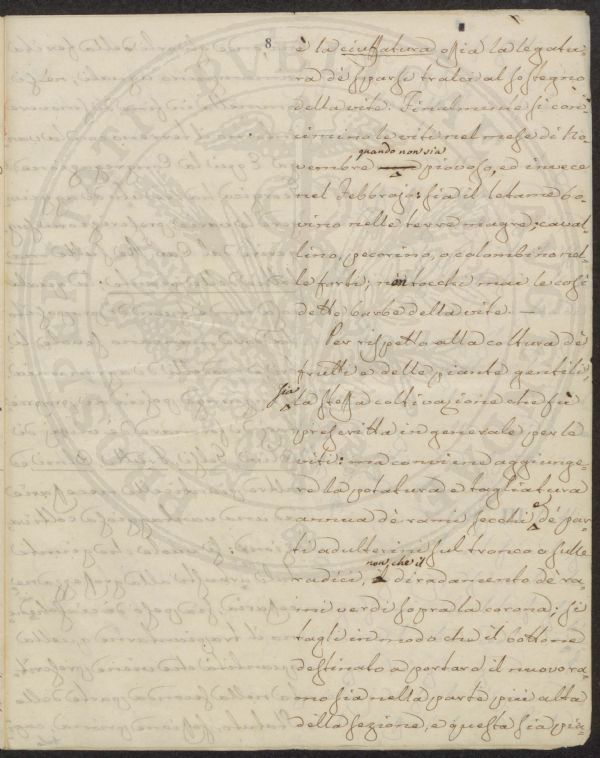 8
è la ciuffatura ossia la legatu-
ra dè sparsi tralci al sostegno
della vite. Finalmente si con-
cimino le viti nel mese di No-
quando non sia
vembre piovoso, ed invece
nel Febbrajo: sia il letame bo-
vino nelle terre magre, caval-
lino, pecorino, o colombino nel-
le forti; non tocchi mai le così
dette barbe della vite. —
Per rispetto alla coltura dè
frutti e delle piante gentili,
sia
la stessa coltivazione che fù
prescritta in generale per le
viti: ma conviene aggiunge-
re la potatura e tagliatura
e
annua dè rami secchi, dè par-
ti adulterini sul tronco o sulle
non che il
radici, diradamento de ra-
mi verdi sopra la corona; si
tagli in modo che il bottone
destinato a portare il nuovo ra-
mo sia nella parte più alta
della sezione, e questa sia pia-